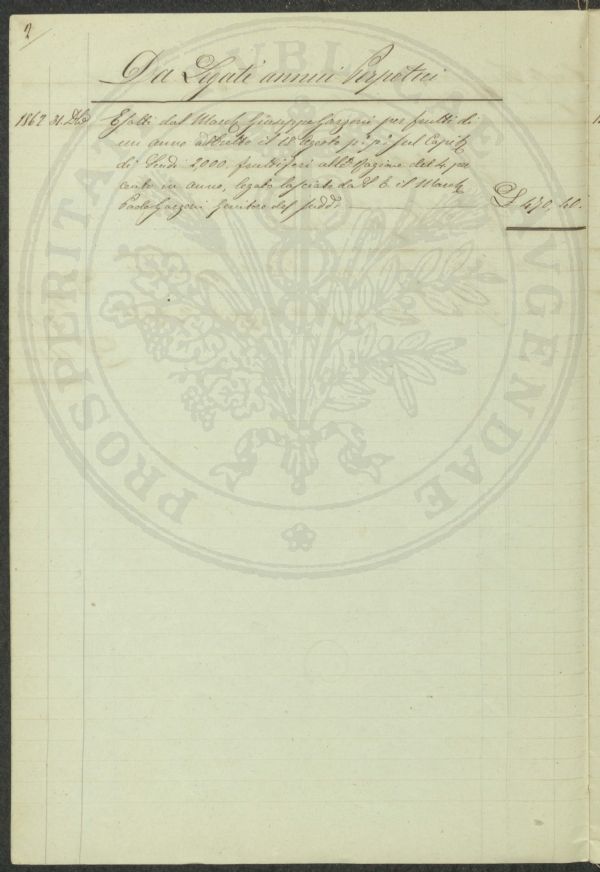 2
Da Legati annui Perpetui
1862 31 Dbre Esatti dal March. Giuseppe Garzoni per frutti di
un anno addietro il 18 Agosto p.° p.° sul Capit.
di Scudi 2,000 fruttiferi alla Ragione del 4 per
cento in anno, legato lasciato da S. E. il March.
Paolo Garzoni Genitore del sudd.° L 470,40.
PROSPERITATI PUBLICAE AUGENDAE